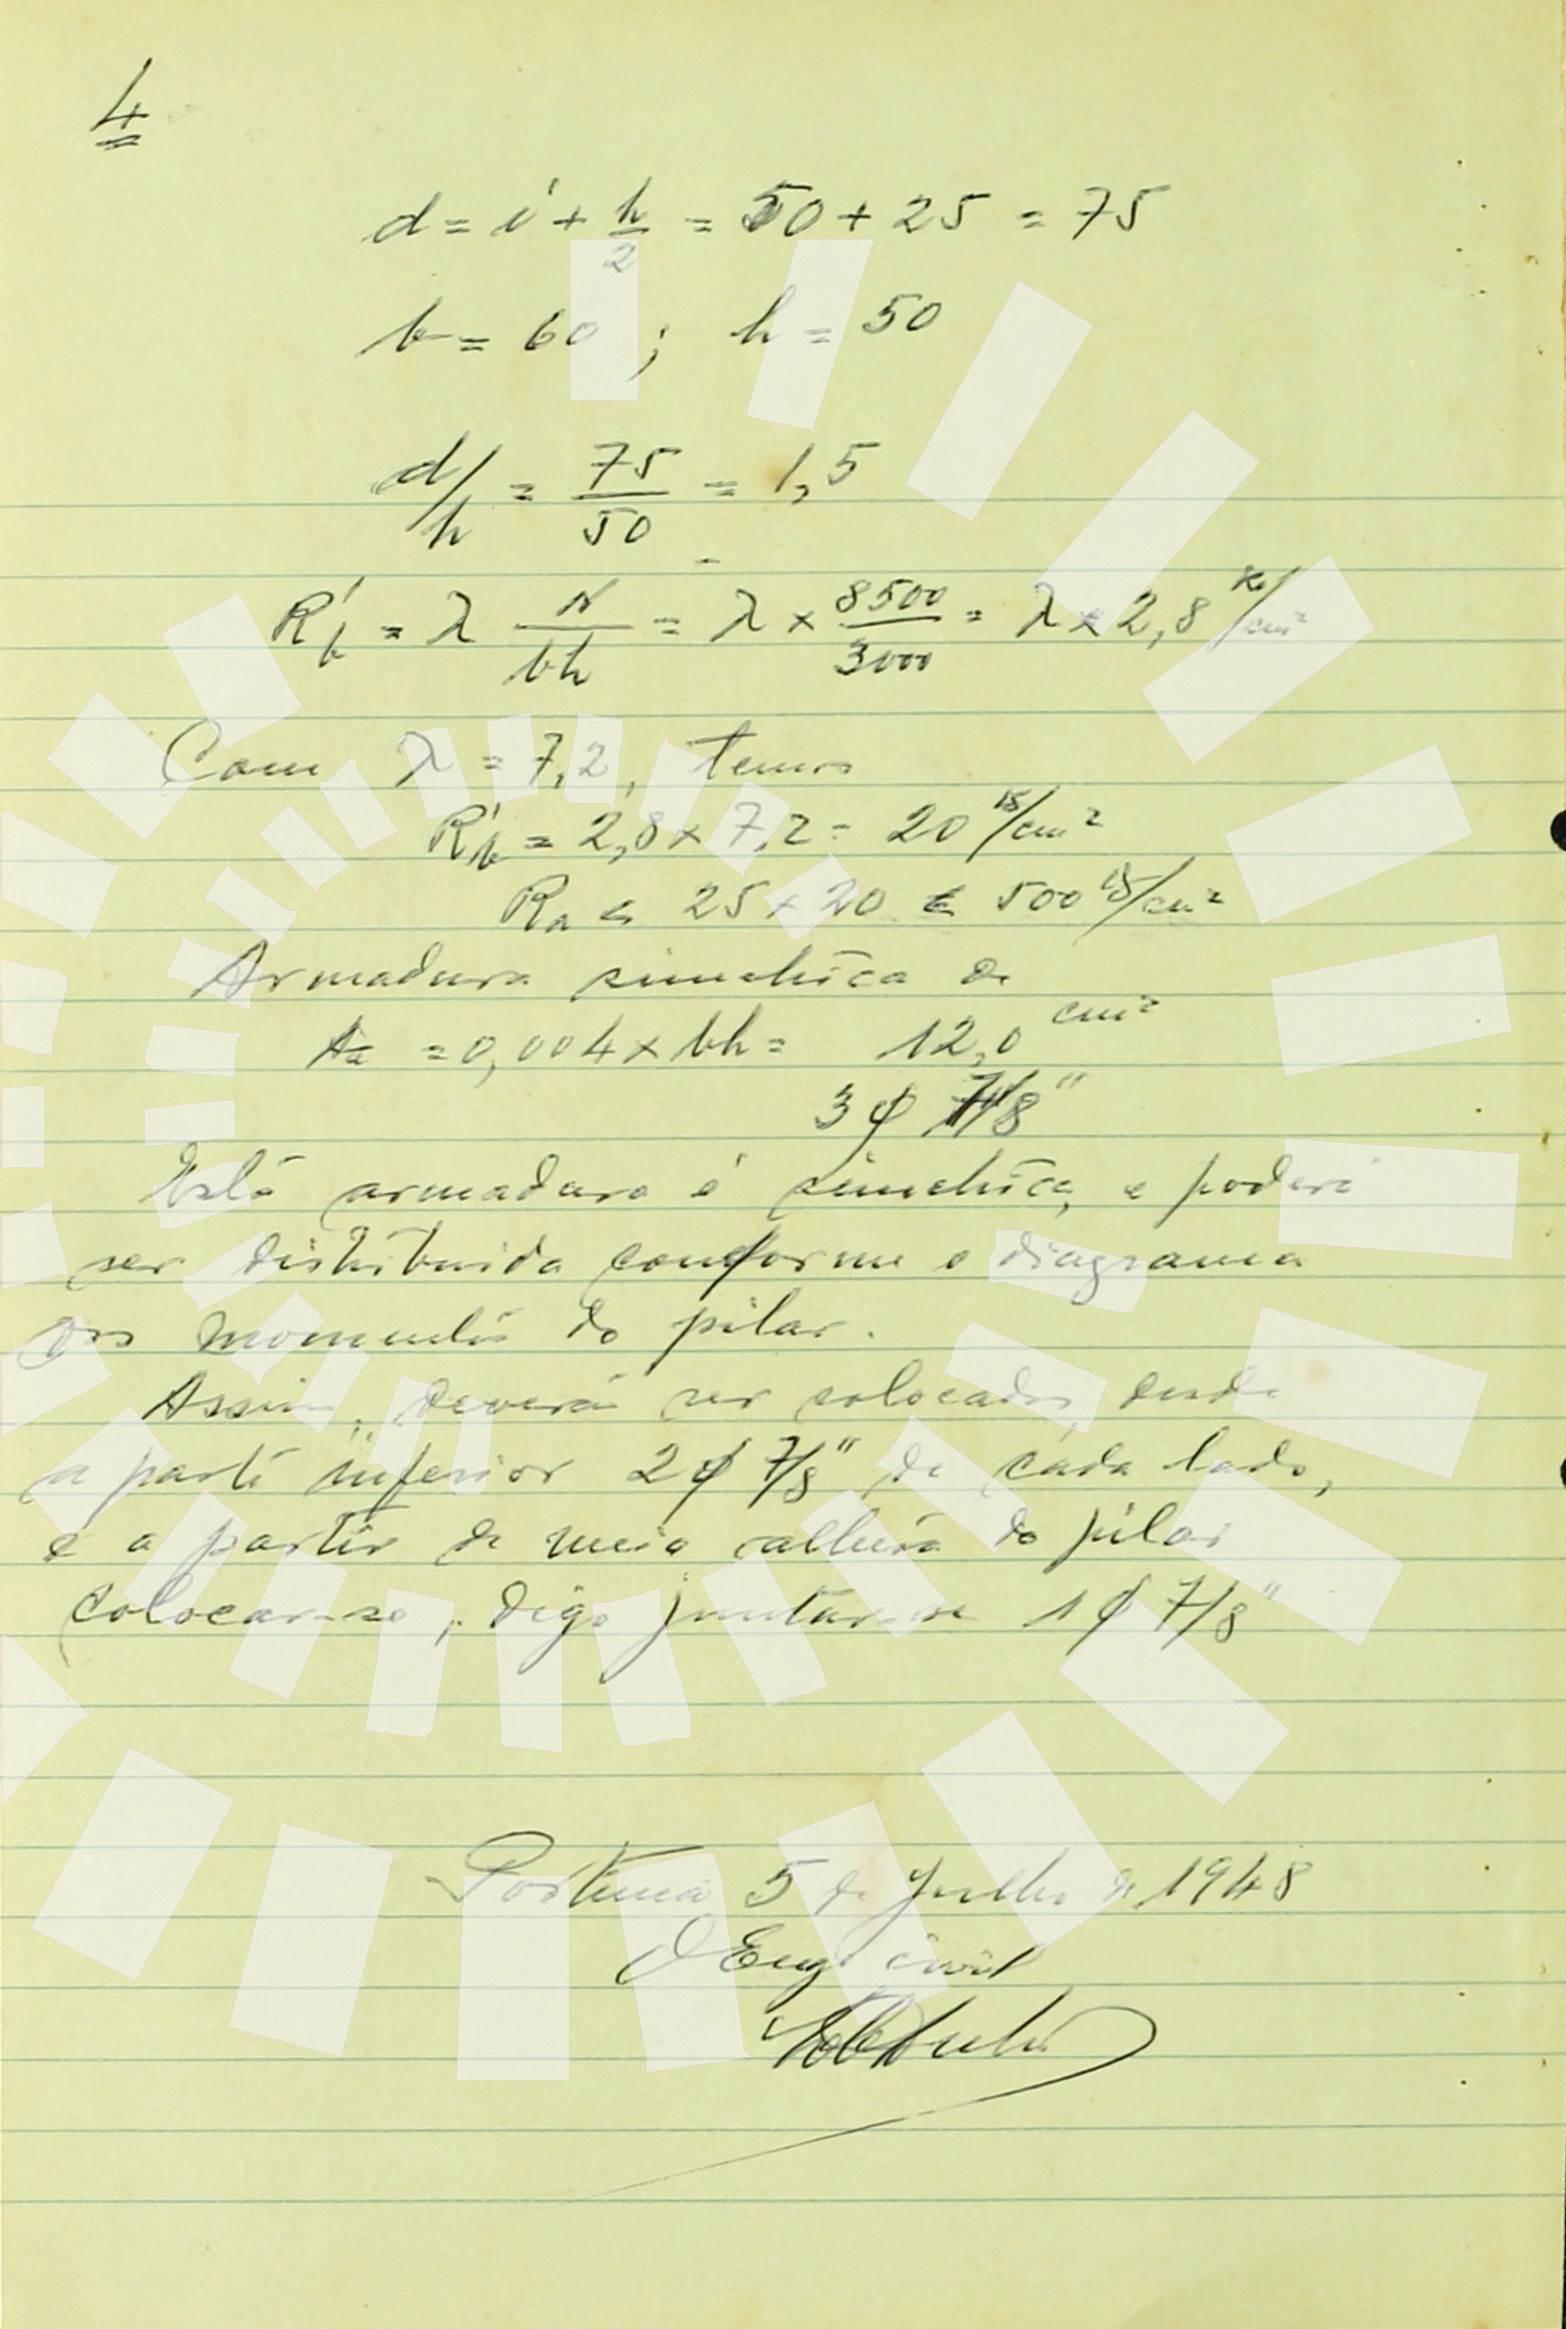 4
d = i + h/2 = 50 + 25 = 75
b = 60 ; h = 50
d/h = 75/50 = 1,5
R'b = λ N/bh = λ × 8500/3000 = λ × 2,8 K/cm²
Com λ = 7,2, temos
R'b = 2,8 × 7,2 = 20 K/cm²
Ra < 25 × 20 < 500 K/cm²
Armadura simetrica de
Aa = 0,004 × bh = 12,0 cm²
3 ϕ 7/8"
Esta armadura é simetrica, e poderá
ser distribuida conforme o diagrama
dos momentos do pilar.
Assim, deverá ser colocados, desde
a parte inferior 2 ϕ 7/8" de cada lado,
e a partir de meia altura do pilar
colocar-se, digo juntar-se 1 ϕ 7/8"
5 de Julho de 1948
O Engº civil